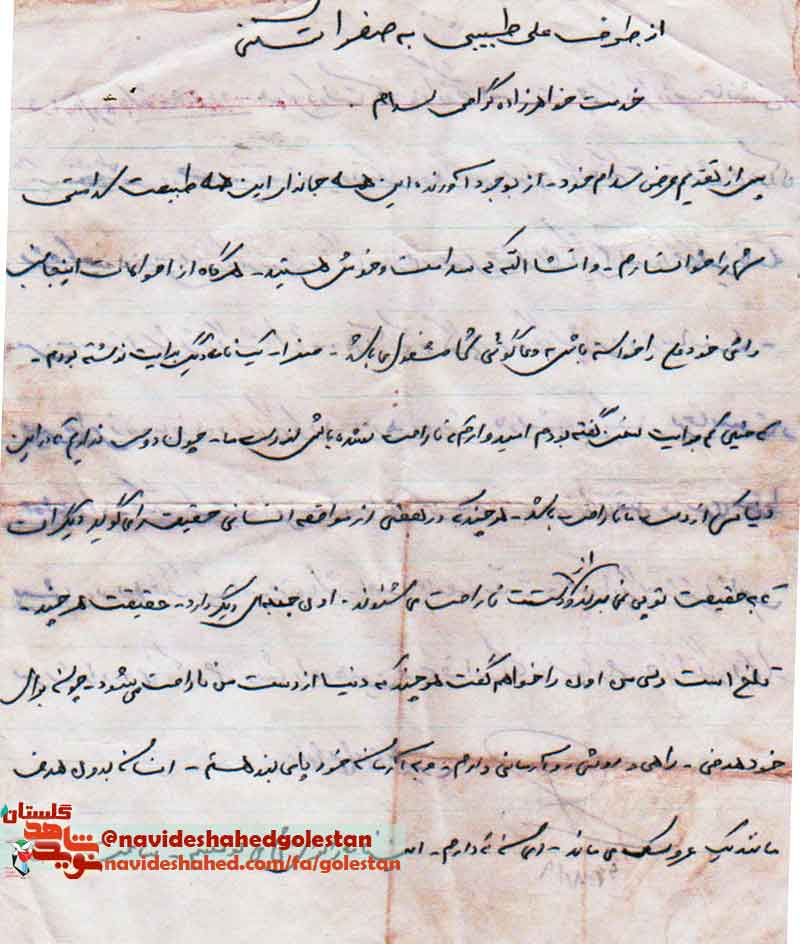 از طرف علی طبیبی به صفرا
خدمت خواهرزاده گرامی سلام .
پس از تقدیم عرض سلام خود - از بوجود آورنده این همه جاندار این همه طبیعت سلامتی
شما را خواستارم - و انشا الله که سلامت و خوش هستید - هرگاه از احوالات اینجانب
دائی خود علی را خواسته باشی به دعا گوئی شما مشغول می باشد - صفرا - یک نامه دیگر برایت نوشته بودم -
که خیلی کم برایت سخن گفته بودم امید وارم که ناراحت نشده باشی از دست ما - چون دوست نداریم که در این
دنیا کسی از دست ما ناراحت باشد - هر چند که در بعضی از مواقع انسانی حقیقت را می گوید دیگران
که به حقیقت توپی نمی برند و از دستت ناراحت می شوند - اون جنبه ای دیگر دارد - حقیقت هر چند -
تلخ است ولی من اون را خواهم گفت هر چند که دنیا از دست من ناراحت می شود - چون برای
خود هدفی - راهی و روشی و آرمانی دارم و به آرمان خود پای بند هستم - انسان بدون هدف
مانند یک عروسک می ماند -
گلستان
نوید شاهد
@navideshahedgolestan
navideshahed.com/fa/golestan